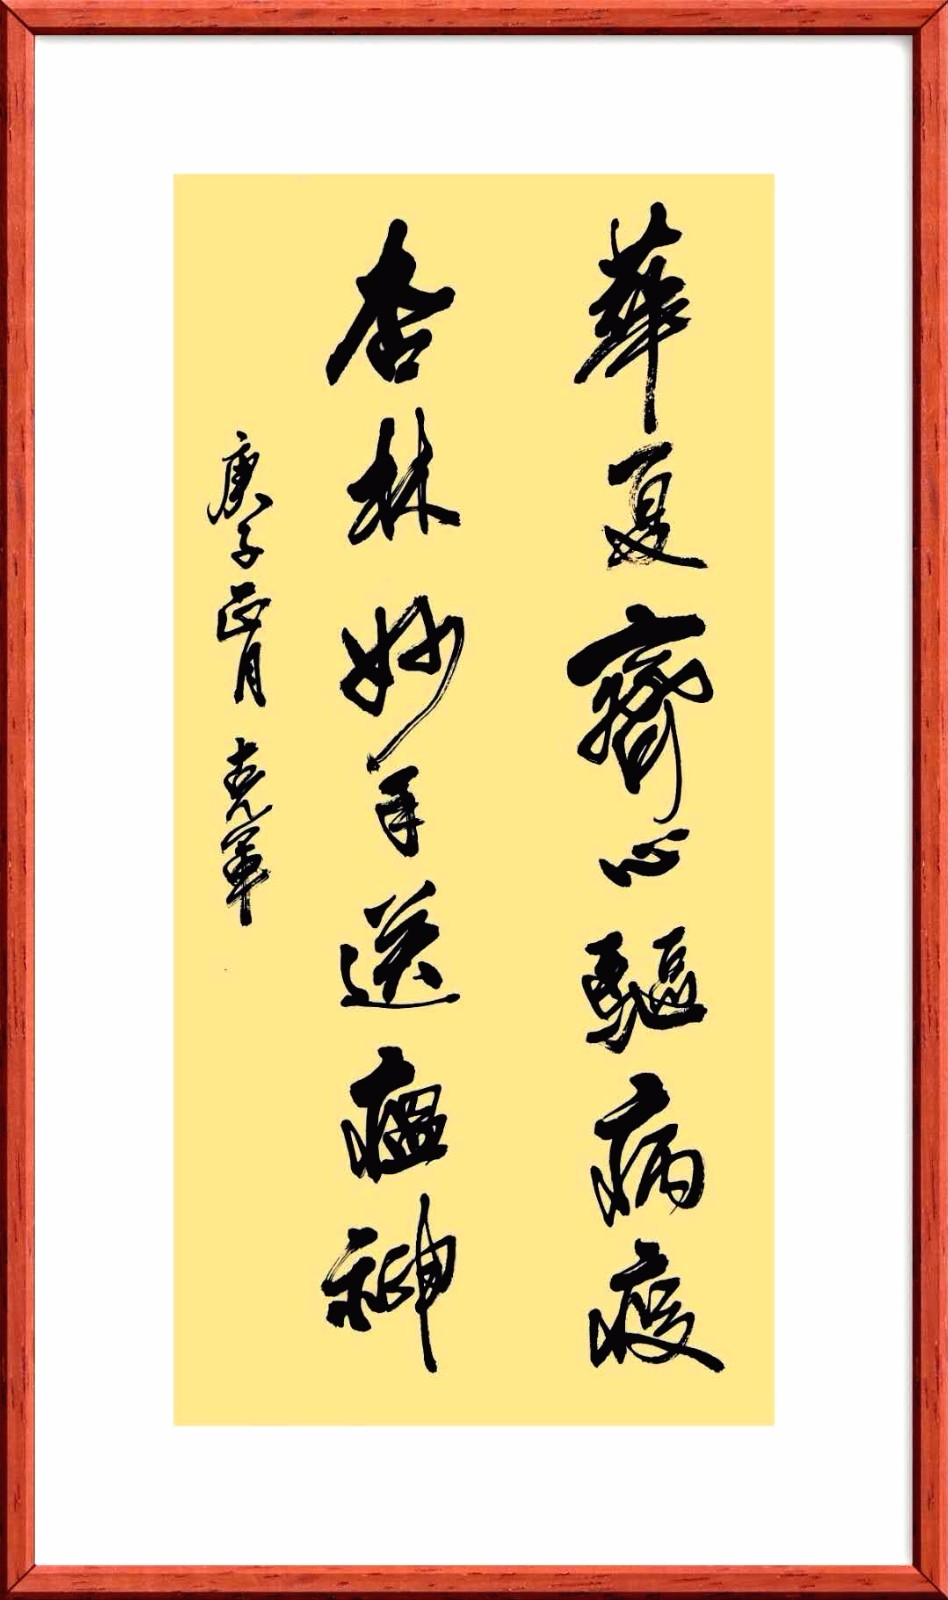 華夏齊心驅病疫
杏林妙手送瘟神
庚子正月 克軍